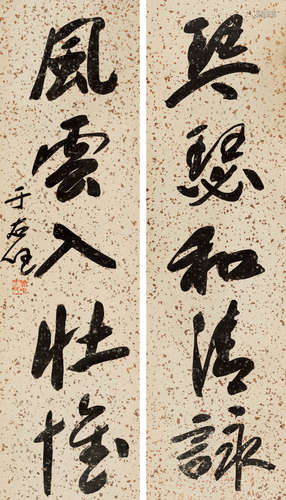 琴瑟和清詠
風雲入壯懷
于右任